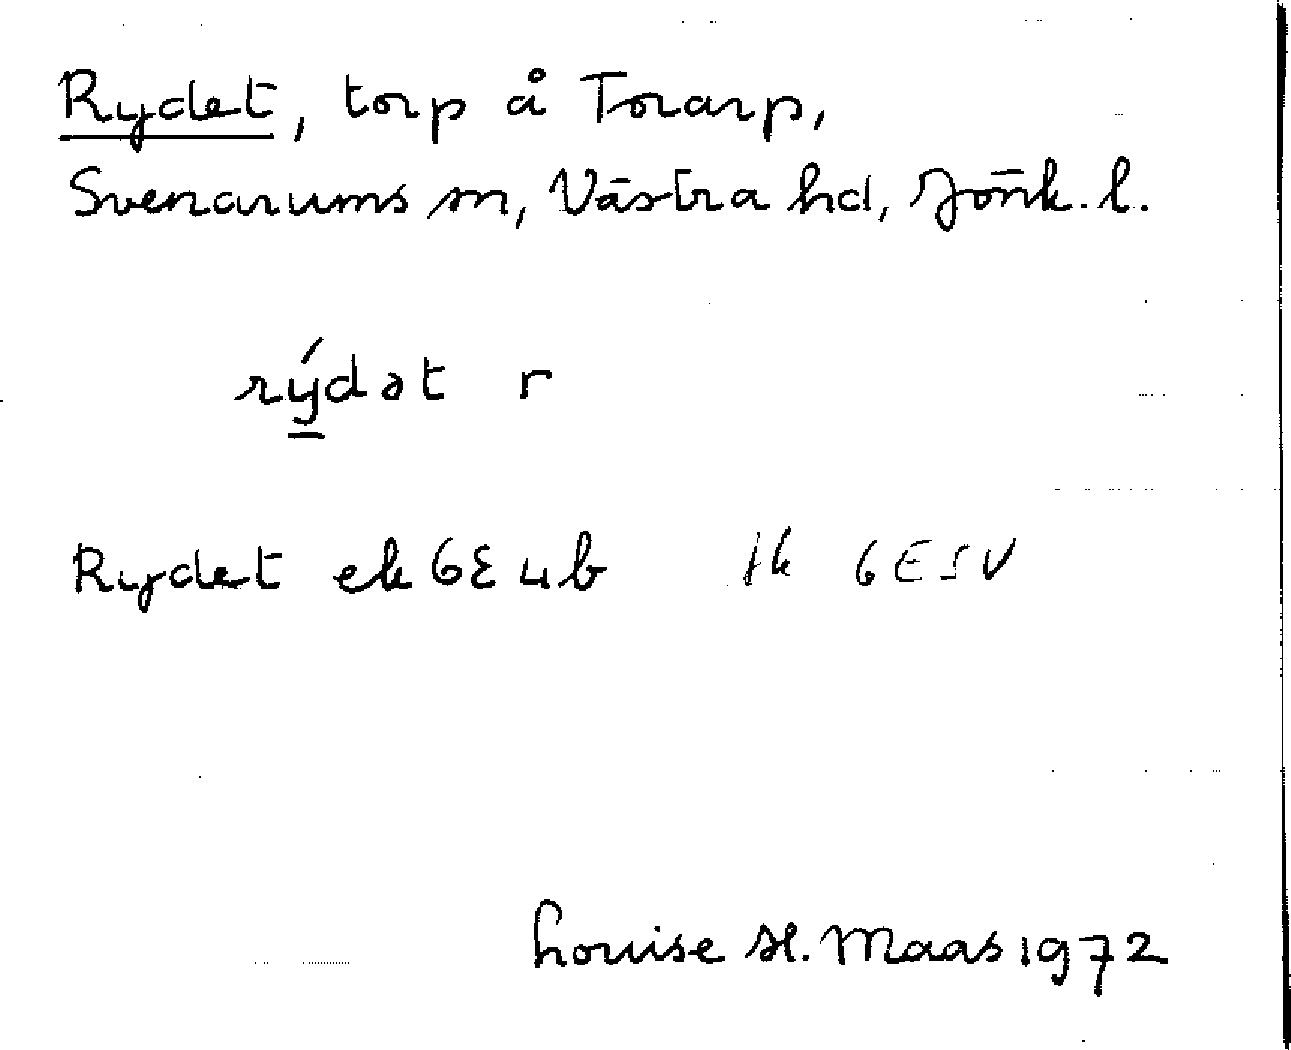 Rydet, torp å Torarp,
Svenarums sn, Västra hd, Jönk. l.
rýdət r
Rydet ek 6E4b fk 6ESV
Louise H. Maas 1972